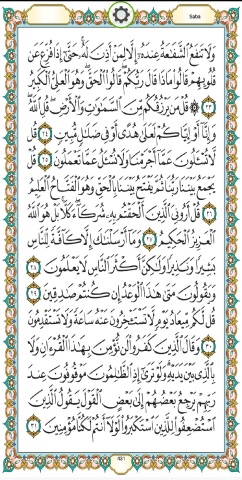 Saba
وَلَا تَنفَعُ ٱلشَّفَٰعَةُ عِندَهُۥٓ إِلَّا لِمَنْ أَذِنَ لَهُۥ حَتَّىٰٓ إِذَا فُزِّعَ عَن
قُلُوبِهِمْ قَالُوا۟ مَاذَا قَالَ رَبُّكُمْ قَالُوا۟ ٱلْحَقَّ وَهُوَ ٱلْعَلِىُّ ٱلْكَبِيرُ
٢٣ قُلْ مَن يَرْزُقُكُم مِّنَ ٱلسَّمَٰوَٰتِ وَٱلْأَرْضِ قُلِ ٱللَّهُ
وَإِنَّآ أَوْ إِيَّاكُمْ لَعَلَىٰ هُدًى أَوْ فِى ضَلَٰلٍ مُّبِينٍ ٢٤ قُل
لَّا تُسْـَٔلُونَ عَمَّآ أَجْرَمْنَا وَلَا نُسْـَٔلُ عَمَّا تَعْمَلُونَ ٢٥ قُلْ
يَجْمَعُ بَيْنَنَا رَبُّنَا ثُمَّ يَفْتَحُ بَيْنَنَا بِٱلْحَقِّ وَهُوَ ٱلْفَتَّاحُ ٱلْعَلِيمُ
٢٦ قُلْ أَرُونِىَ ٱلَّذِينَ أَلْحَقْتُم بِهِۦ شُرَكَآءَ كَلَّا بَلْ هُوَ ٱللَّهُ
ٱلْعَزِيزُ ٱلْحَكِيمُ ٢٧ وَمَآ أَرْسَلْنَٰكَ إِلَّا كَآفَّةً لِّلنَّاسِ
بَشِيرًا وَنَذِيرًا وَلَٰكِنَّ أَكْثَرَ ٱلنَّاسِ لَا يَعْلَمُونَ ٢٨
وَيَقُولُونَ مَتَىٰ هَٰذَا ٱلْوَعْدُ إِن كُنتُمْ صَٰدِقِينَ ٢٩
قُل لَّكُم مِّيعَادُ يَوْمٍ لَّا تَسْتَـْٔخِرُونَ عَنْهُ سَاعَةً وَلَا تَسْتَقْدِمُونَ
٣٠ وَقَالَ ٱلَّذِينَ كَفَرُوا۟ لَن نُّؤْمِنَ بِهَٰذَا ٱلْقُرْءَانِ وَلَا
بِٱلَّذِى بَيْنَ يَدَيْهِ وَلَوْ تَرَىٰٓ إِذِ ٱلظَّٰلِمُونَ مَوْقُوفُونَ عِندَ
رَبِّهِمْ يَرْجِعُ بَعْضُهُمْ إِلَىٰ بَعْضٍ ٱلْقَوْلَ يَقُولُ ٱلَّذِينَ
ٱسْتُضْعِفُوا۟ لِلَّذِينَ ٱسْتَكْبَرُوا۟ لَوْلَآ أَنتُمْ لَكُنَّا مُؤْمِنِينَ ٣١
431